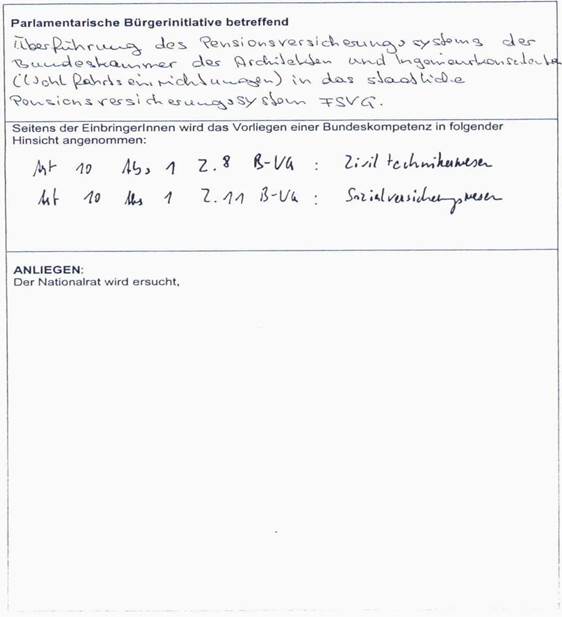 Parlamentarische Bürgerinitiative betreffend
Überführung des Pensionsversicherungssystems der
Bundeskammer der Architekten und Ingenieurkonsulenten
(Wohlfahrtseinrichtungen) in das staatliche
Pensionsversicherungssystem FSVG.
Seitens der EinbringerInnen wird das Vorliegen einer Bundeskompetenz in folgender
Hinsicht angenommen:
Art 10 Abs 1 Z. 8 B-VG : Ziviltechnikerwesen
Art 10 Abs 1 Z. 11 B-VG : Sozialversicherungswesen
ANLIEGEN:
Der Nationalrat wird ersucht,